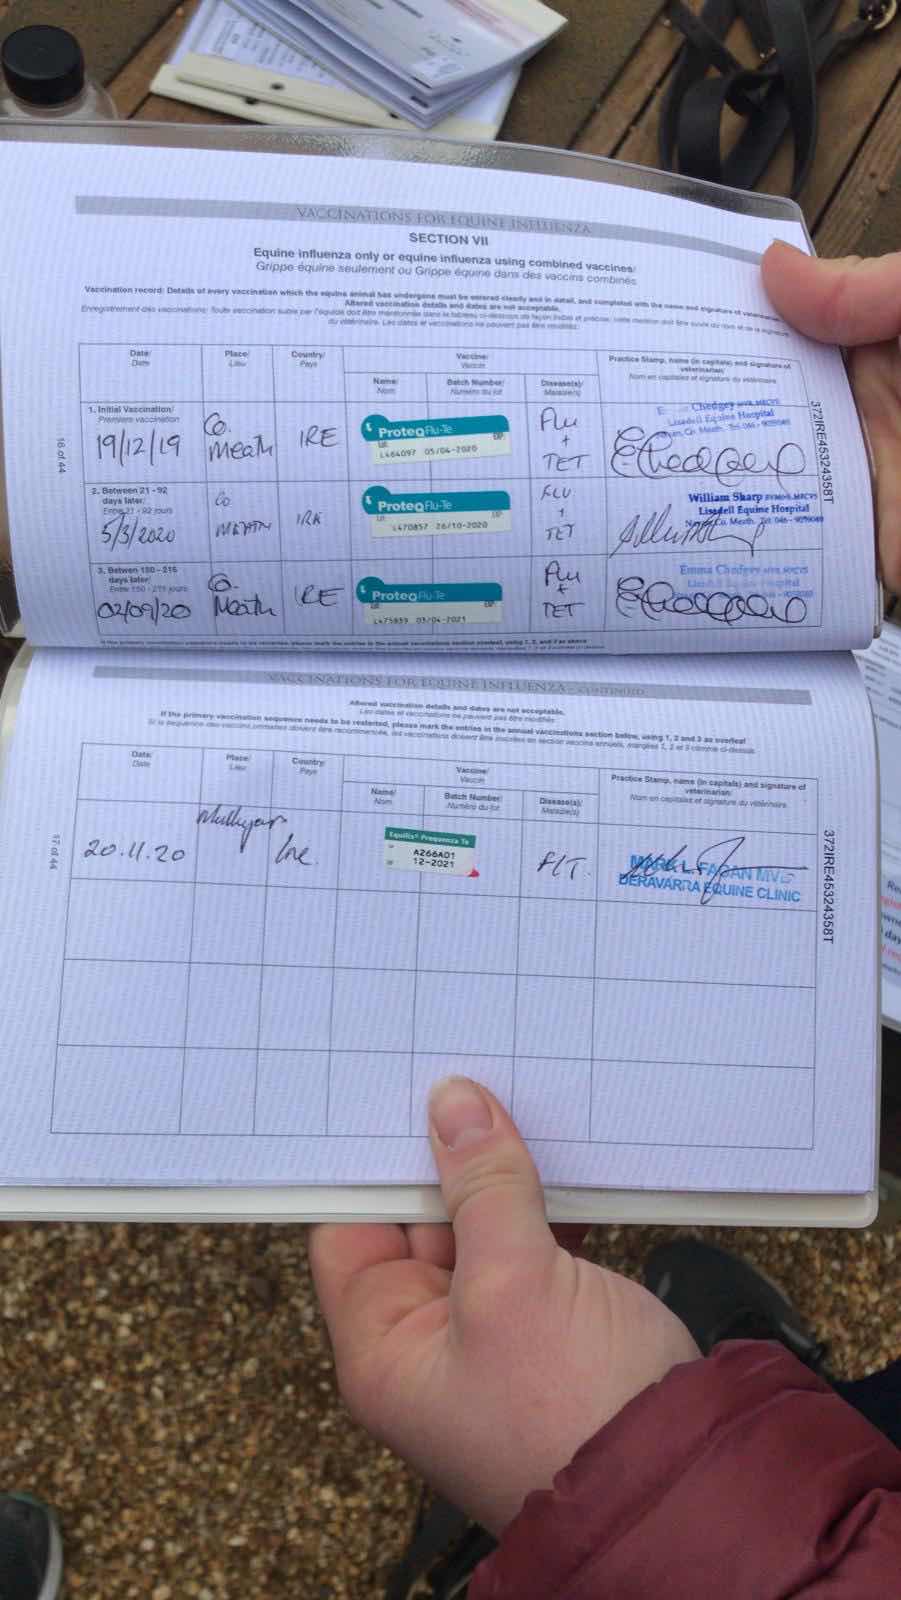 VACCINATIONS FOR EQUINE INFLUENZA
SECTION VII
Equine influenza only or equine influenza using combined vaccines/
Grippe équine seulement ou Grippe équine dans des vaccins combinés
Vaccination record: Details of every vaccination which the equine animal has undergone must be entered clearly and in detail, and completed with the name and signature of veterinarian.
Altered vaccination details and dates are not acceptable.
Enregistrement des vaccinations: Toute vaccination subie par l'équidé doit être mentionnée dans le tableau ci-dessous de façon lisible et précise; cette mention doit être suivie du nom et de la signature
du vétérinaire. Les dates et vaccinations ne peuvent pas être modifiés.
Date/ Place/ Country/ Vaccine/ Practice Stamp, name (in capitals) and signature of
Date Lieu Pays Vaccin veterinarian/
Nom en capitales et signature du vétérinaire
Name/ Batch Number/ Disease(s)/
Nom Numéro du lot Maladie(s)
1. Initial Vaccination/
Premiere vaccination
19/12/19 Co. Meath IRE ProteqFlu-Te Flu + TET
L464097 05/04-2020
Chedgey MVB, MRCVS
Lisadell Equine Hospital
Navan, Co. Meath. Tel: 046 - 9059049
2. Between 21 - 92
days later/
Entre 21 - 92 jours
5/3/2020 Co MEATH IRE ProteqFlu-Te FLU + TET
L470857 26/10-2020
William Sharp BVM&S, MRCVS
Lisadell Equine Hospital
Co. Meath. Tel: 046 - 9059049
3. Between 150 - 215
days later/
Entre 150 - 215 jours
02/09/20 Co. Meath IRE ProteqFlu-Te Flu + TET
L475839 03/04-2021
Emma Chedgey MVB, MRCVS
Lisadell Equine Hospital
16 of 44
372IRE45324358T
VACCINATIONS FOR EQUINE INFLUENZA - CONTINUED
Altered vaccination details and dates are not acceptable.
Les dates et vaccinations ne peuvent pas être modifiés
If the primary vaccination sequence needs to be restarted, please mark the entries in the annual vaccinations section below, using 1, 2 and 3 as overleaf
Date/ Place/ Country/ Vaccine/ Practice Stamp, name (in capitals) and signature of
Date Lieu Pays Vaccin veterinarian/
Nom en capitales et signature du vétérinaire
Name/ Batch Number/ Disease(s)/
Nom Numéro du lot Maladie(s)
20.11.20 Ire. Equilis® Prequenza Te F/T.
A266A01
12-2021
MARK L. FAGAN MVB
DERAVARRA EQUINE CLINIC
17 of 44
372IRE45324358T